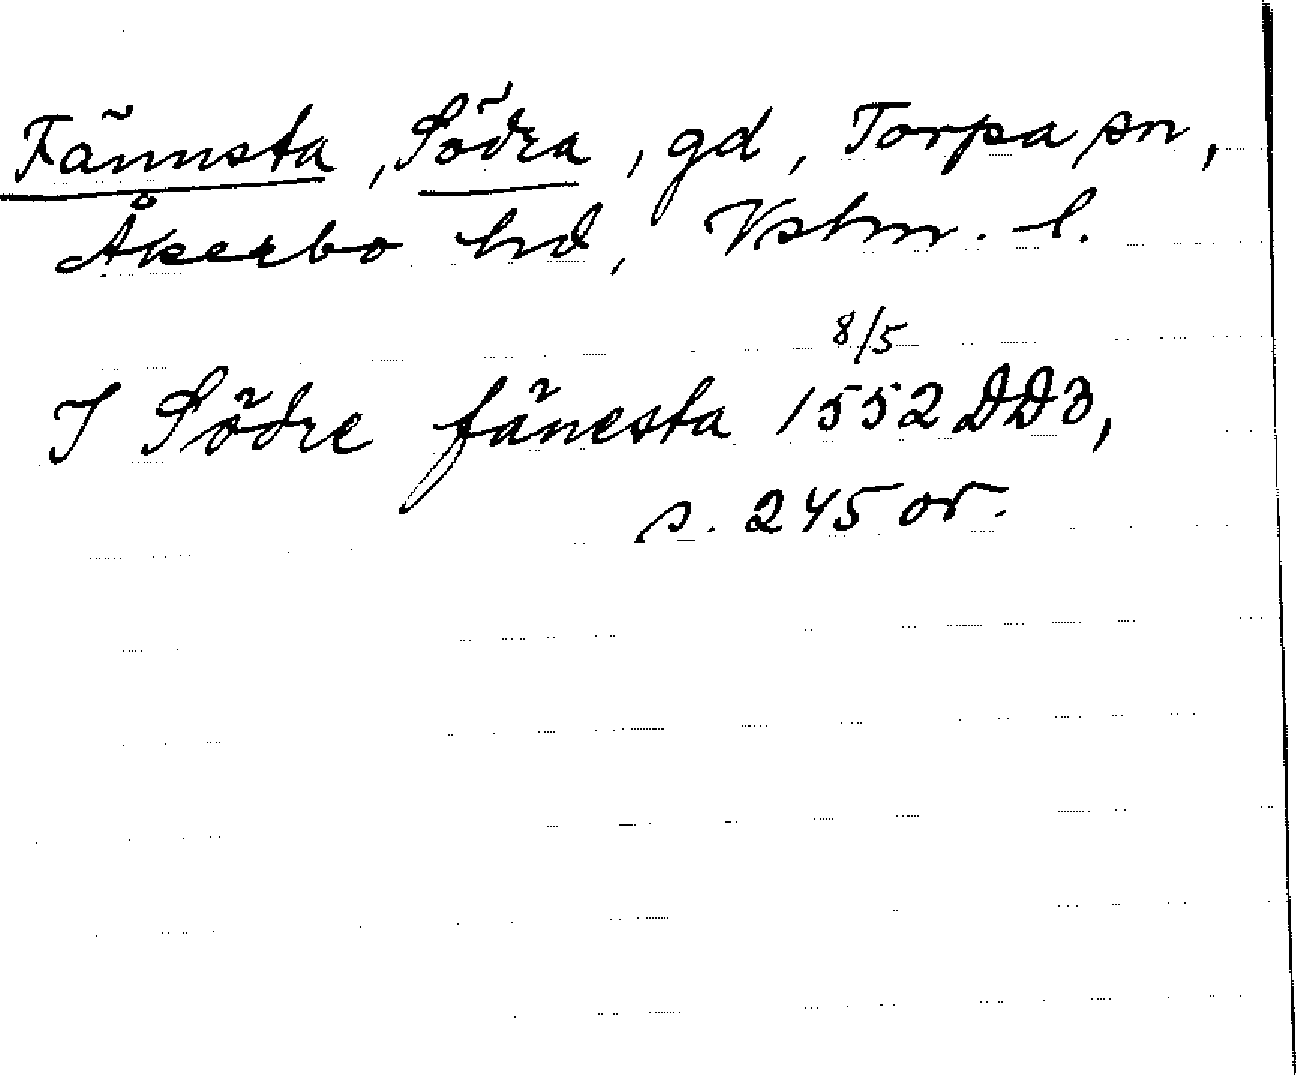 Fännsta, Södra, gd, Torpa sn,
Åkerbo hd, Vstm. l.
8/5
I Södre fänesta 1552 DDD,
s. 245 or.